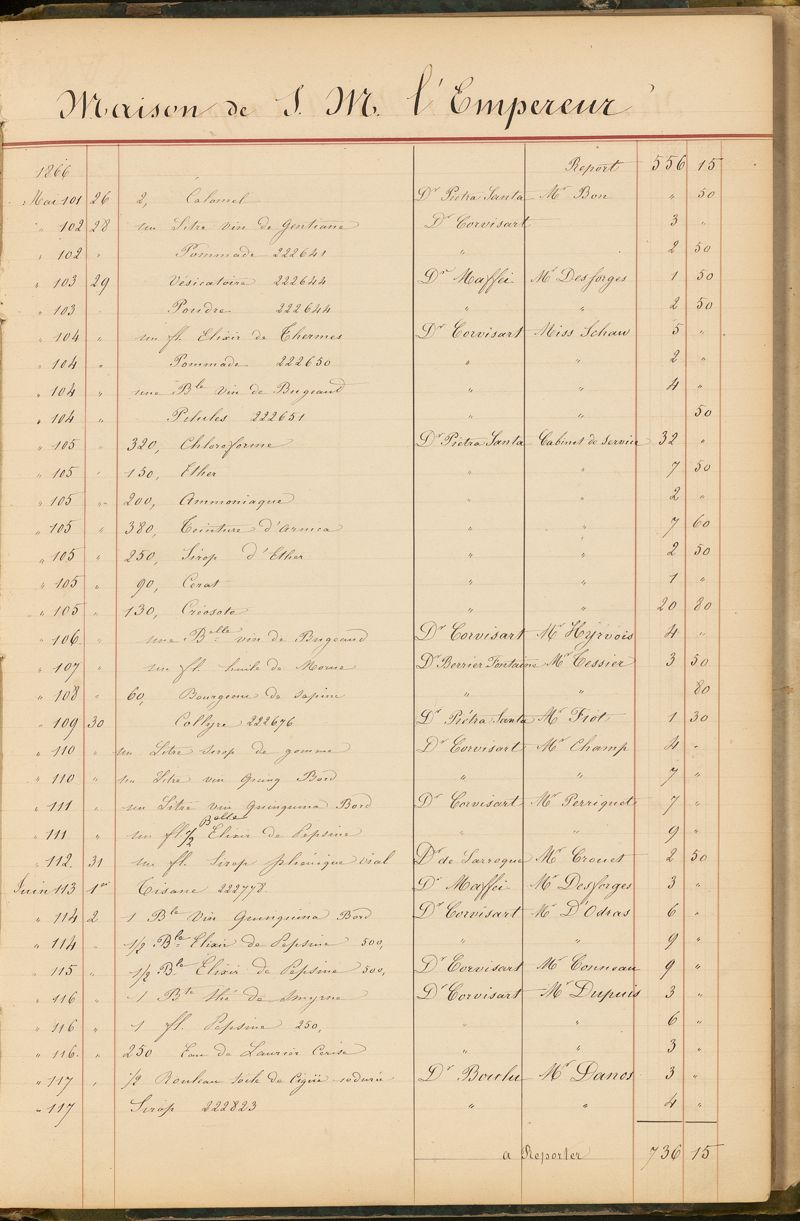 Maison de S. M. l'Empereur
1866 Report 556 15
Mai 101 26 2, Calomel Dr Piétra Santa Mr Bon " 50
" 102 28 un Litre vin de gentiane Dr Corvisart 3 "
" 102 " Pommade 222641 " 2 50
" 103 29 Vésicatoire 222644 Dr Maffei Mr Desforges 1 50
" 103 Poudre 222644 " " 2 50
" 104 " un fl. Elixir de Thermes Dr Corvisart Miss Schau 5 "
" 104 " Pommade 222650 " " 2 "
" 104 " une Ble Vin de Bugeaud " " 4 "
" 104 " Pilules 222651 " " 50
" 105 " 320, Chloroforme Dr Piétra Santa Cabinet de service 32 "
" 105 " 150, Ether " " 7 50
" 105 " 200, Ammoniaque " " 2 "
" 105 " 380, Teinture d'Arnica " " 7 60
" 105 " 250, Sirop d'Ether " " 2 50
" 105 " 90, Cerat " " 1 "
" 105 " 130, Créosote " " 20 80
" 106. " une Belle vin de Bugeaud Dr Corvisart Mr Hyrvoix 4 "
" 107 " un fl. huile de Morue Dr Berrier Fontaine Mr Tessier 3 50
" 108 " 60, Bourgeons de sapins " " 80
" 109 30 Collyre 222676 Dr Piétra Santa Mr Fiot 1 30
" 110 " un Litre sirop de gomme Dr Corvisart Mr Champ 4 "
" 110 " un Litre vin Quinq Bord " " 7 "
" 111 " un Litre vin Quinquina Bord Dr Corvisart Mr Perrignot 7 "
" 111 " un fl. 1/2 Belle Elixir de Pepsine " " 9 "
" 112. 31 un fl. Sirop phénique vial Dr de Larroque Mr Crouet 2 50
Juin 113 1er Tisane 222778 Dr Maffei Mr Desforges 3 "
" 114 2 1 Ble Vin Quinquina Bord Dr Corvisart Mr D'Odras 6 "
" 114 " 1/2 Ble Elixir de Pepsine 500, " " 9 "
" 115 " 1/2 Ble Elixir de Pepsine 500, Dr Corvisart Mr Conneau 9 "
" 116 " 1 Bte thé de Smyrne Dr Corvisart Mr Dupuis 3 "
" 116 " 1 fl. Pepsine 250, " " 6 "
" 116. " 250 Eau de Laurier Cerise " " 3 "
" 117 " 1/2 Rouleau toile de Ciguë iodurée Dr Mr Danos 3 "
" 117 Sirop 222823 " " 4 "
a Reporter 736 15